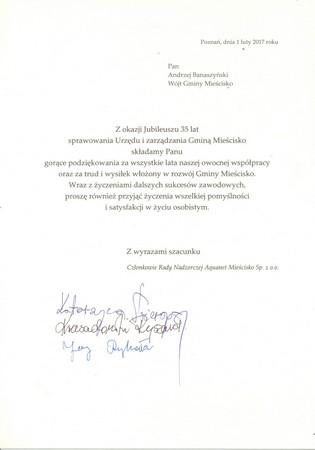 Poznań, dnia 1 luty 2017 roku
Pan
Andrzej Banaszyński
Wójt Gminy Mieścisko
Z okazji Jubileuszu 35 lat
sprawowania Urzędu i zarządzania Gminą Mieścisko
składamy Panu
gorące podziękowania za wszystkie lata naszej owocnej współpracy
oraz za trud i wysiłek włożony w rozwój Gminy Mieścisko.
Wraz z życzeniami dalszych sukcesów zawodowych,
proszę również przyjąć życzenia wszelkiej pomyślności
i satysfakcji w życiu osobistym.
Z wyrazami szacunku
Członkowie Rady Nadzorczej Aquanet Mieścisko Sp. z o.o.
Katarzyna